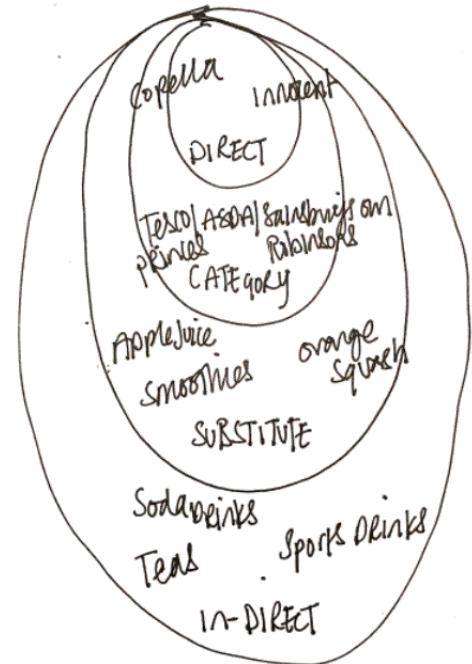 Copella
Innocent
DIRECT
Tesco/ASDA/Sainsburys own
Princes Robinsons
CATEGORY
Apple Juice
orange
Smoothies
squash
SUBSTITUTE
Soda Drinks
Sports Drinks
Teas
IN-DIRECT